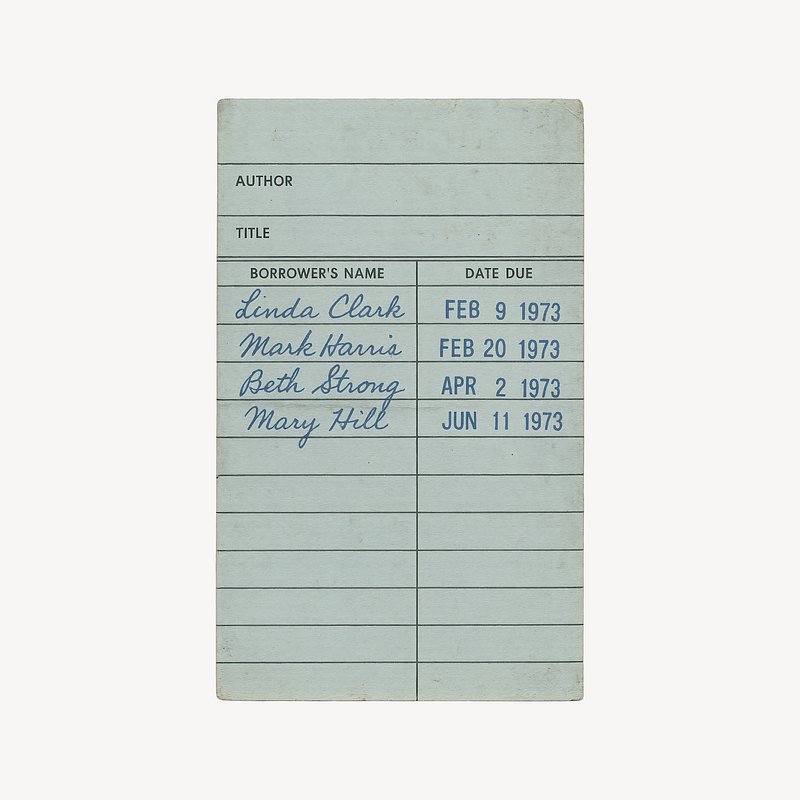 AUTHOR
TITLE
BORROWER'S NAME DATE DUE
Linda Clark FEB 9 1973
Mark Harris FEB 20 1973
Beth Strong APR 2 1973
Mary Hill JUN 11 1973